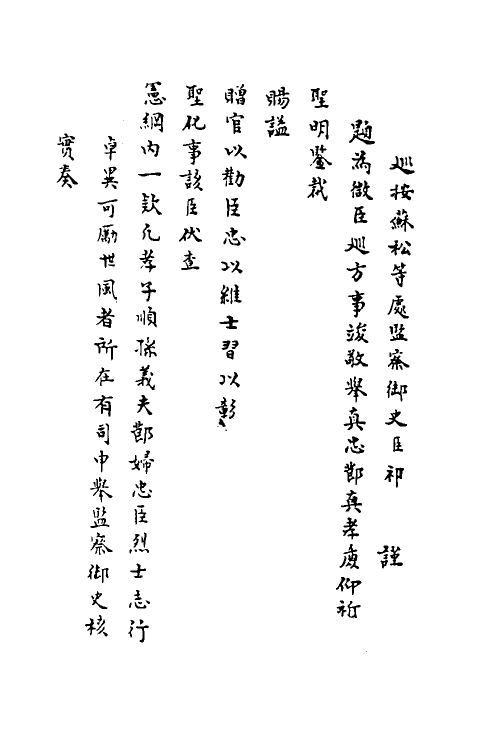 巡按蘇松等處監察御史臣祁 謹
題為微臣巡方事竣敬舉真忠節真孝廉仰祈
聖明鑒裁
賜謚
贈官以勸臣忠以維士習以彰
聖化事該臣伏查
憲綱內一款凡孝子順孫義夫節婦忠臣烈士志行
卓異可勵世風者所在有司申舉監察御史核
實奏